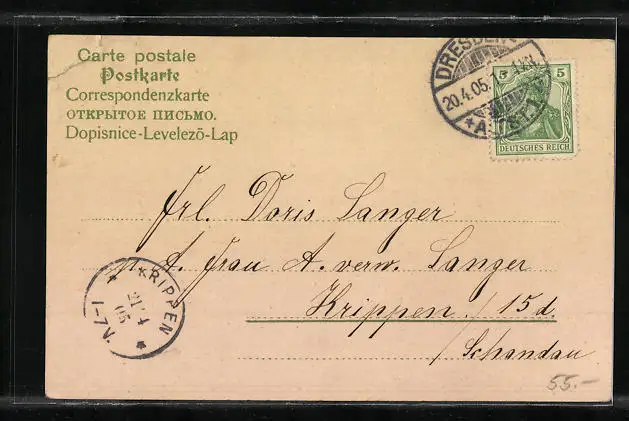 Carte postale
Postkarte
Correspondenzkarte
ОТКРЫТОЕ ПИСЬМО.
Dopisnice-Levelező-Lap
DRESDEN
20.4.05.
5 5
DEUTSCHES REICH
Frl. Doris Langer
p. A. Frau A. verw. Langer
Krippen / 15 d.
/ Schandau
KRIPPEN
21 4
05
1-7N
55.-